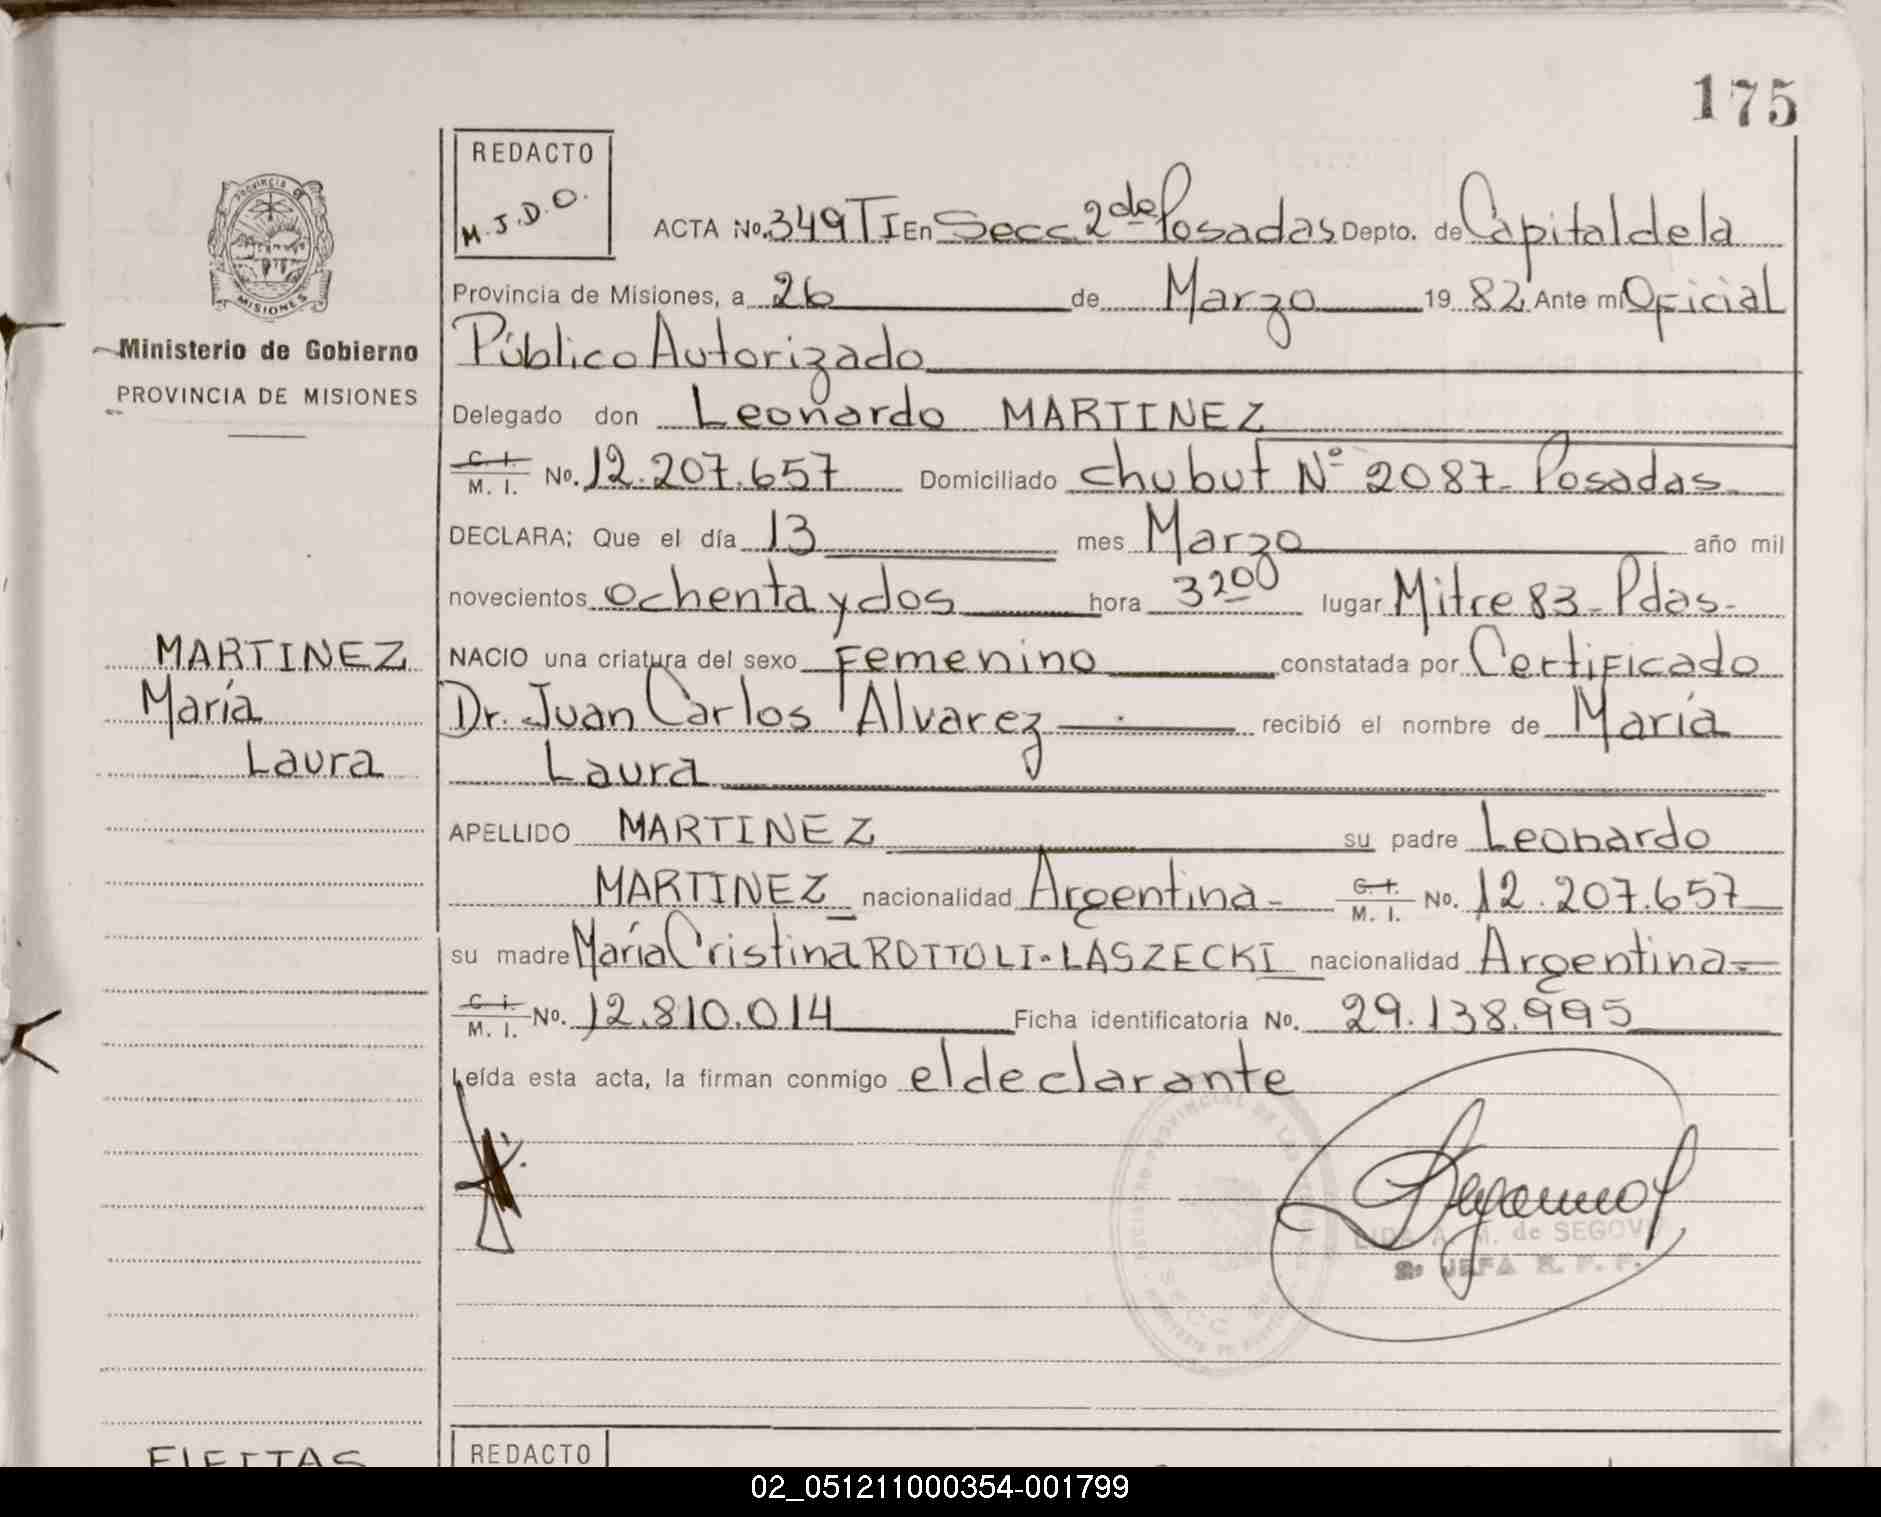 175
REDACTO
M.J.D.O.
ACTA No. 349 TI En Secc. 2da Posadas Depto. de Capital de la
Provincia de Misiones, a 26 de Marzo 19 82 Ante mi Oficial
Público Autorizado
Delegado don Leonardo MARTINEZ
C. I. / M. I. No. 12.207.657 Domiciliado Chubut Nº 2087 - Posadas -
DECLARA: Que el día 13 mes Marzo año mil
novecientos ochenta y dos hora 3 200 lugar Mitre 83 - Pdas -
NACIO una criatura del sexo Femenino constatada por Certificado
Dr. Juan Carlos Alvarez recibió el nombre de María
Laura
APELLIDO MARTINEZ su padre Leonardo
MARTINEZ nacionalidad Argentina - C. I. / M. I. No. 12.207.657
su madre María Cristina ROTTOLI - LASZECKI nacionalidad Argentina -
C. I. / M. I. No. 12.810.014 Ficha identificatoria No. 29.138.995
Leída esta acta, la firman conmigo el declarante
A. M. de SEGOVI
JEFA R. P. P.
PROVINCIA DE
MISIONES
Ministerio de Gobierno
PROVINCIA DE MISIONES
MARTINEZ
María
Laura
FLEITAS
REDACTO
02_051211000354-001799